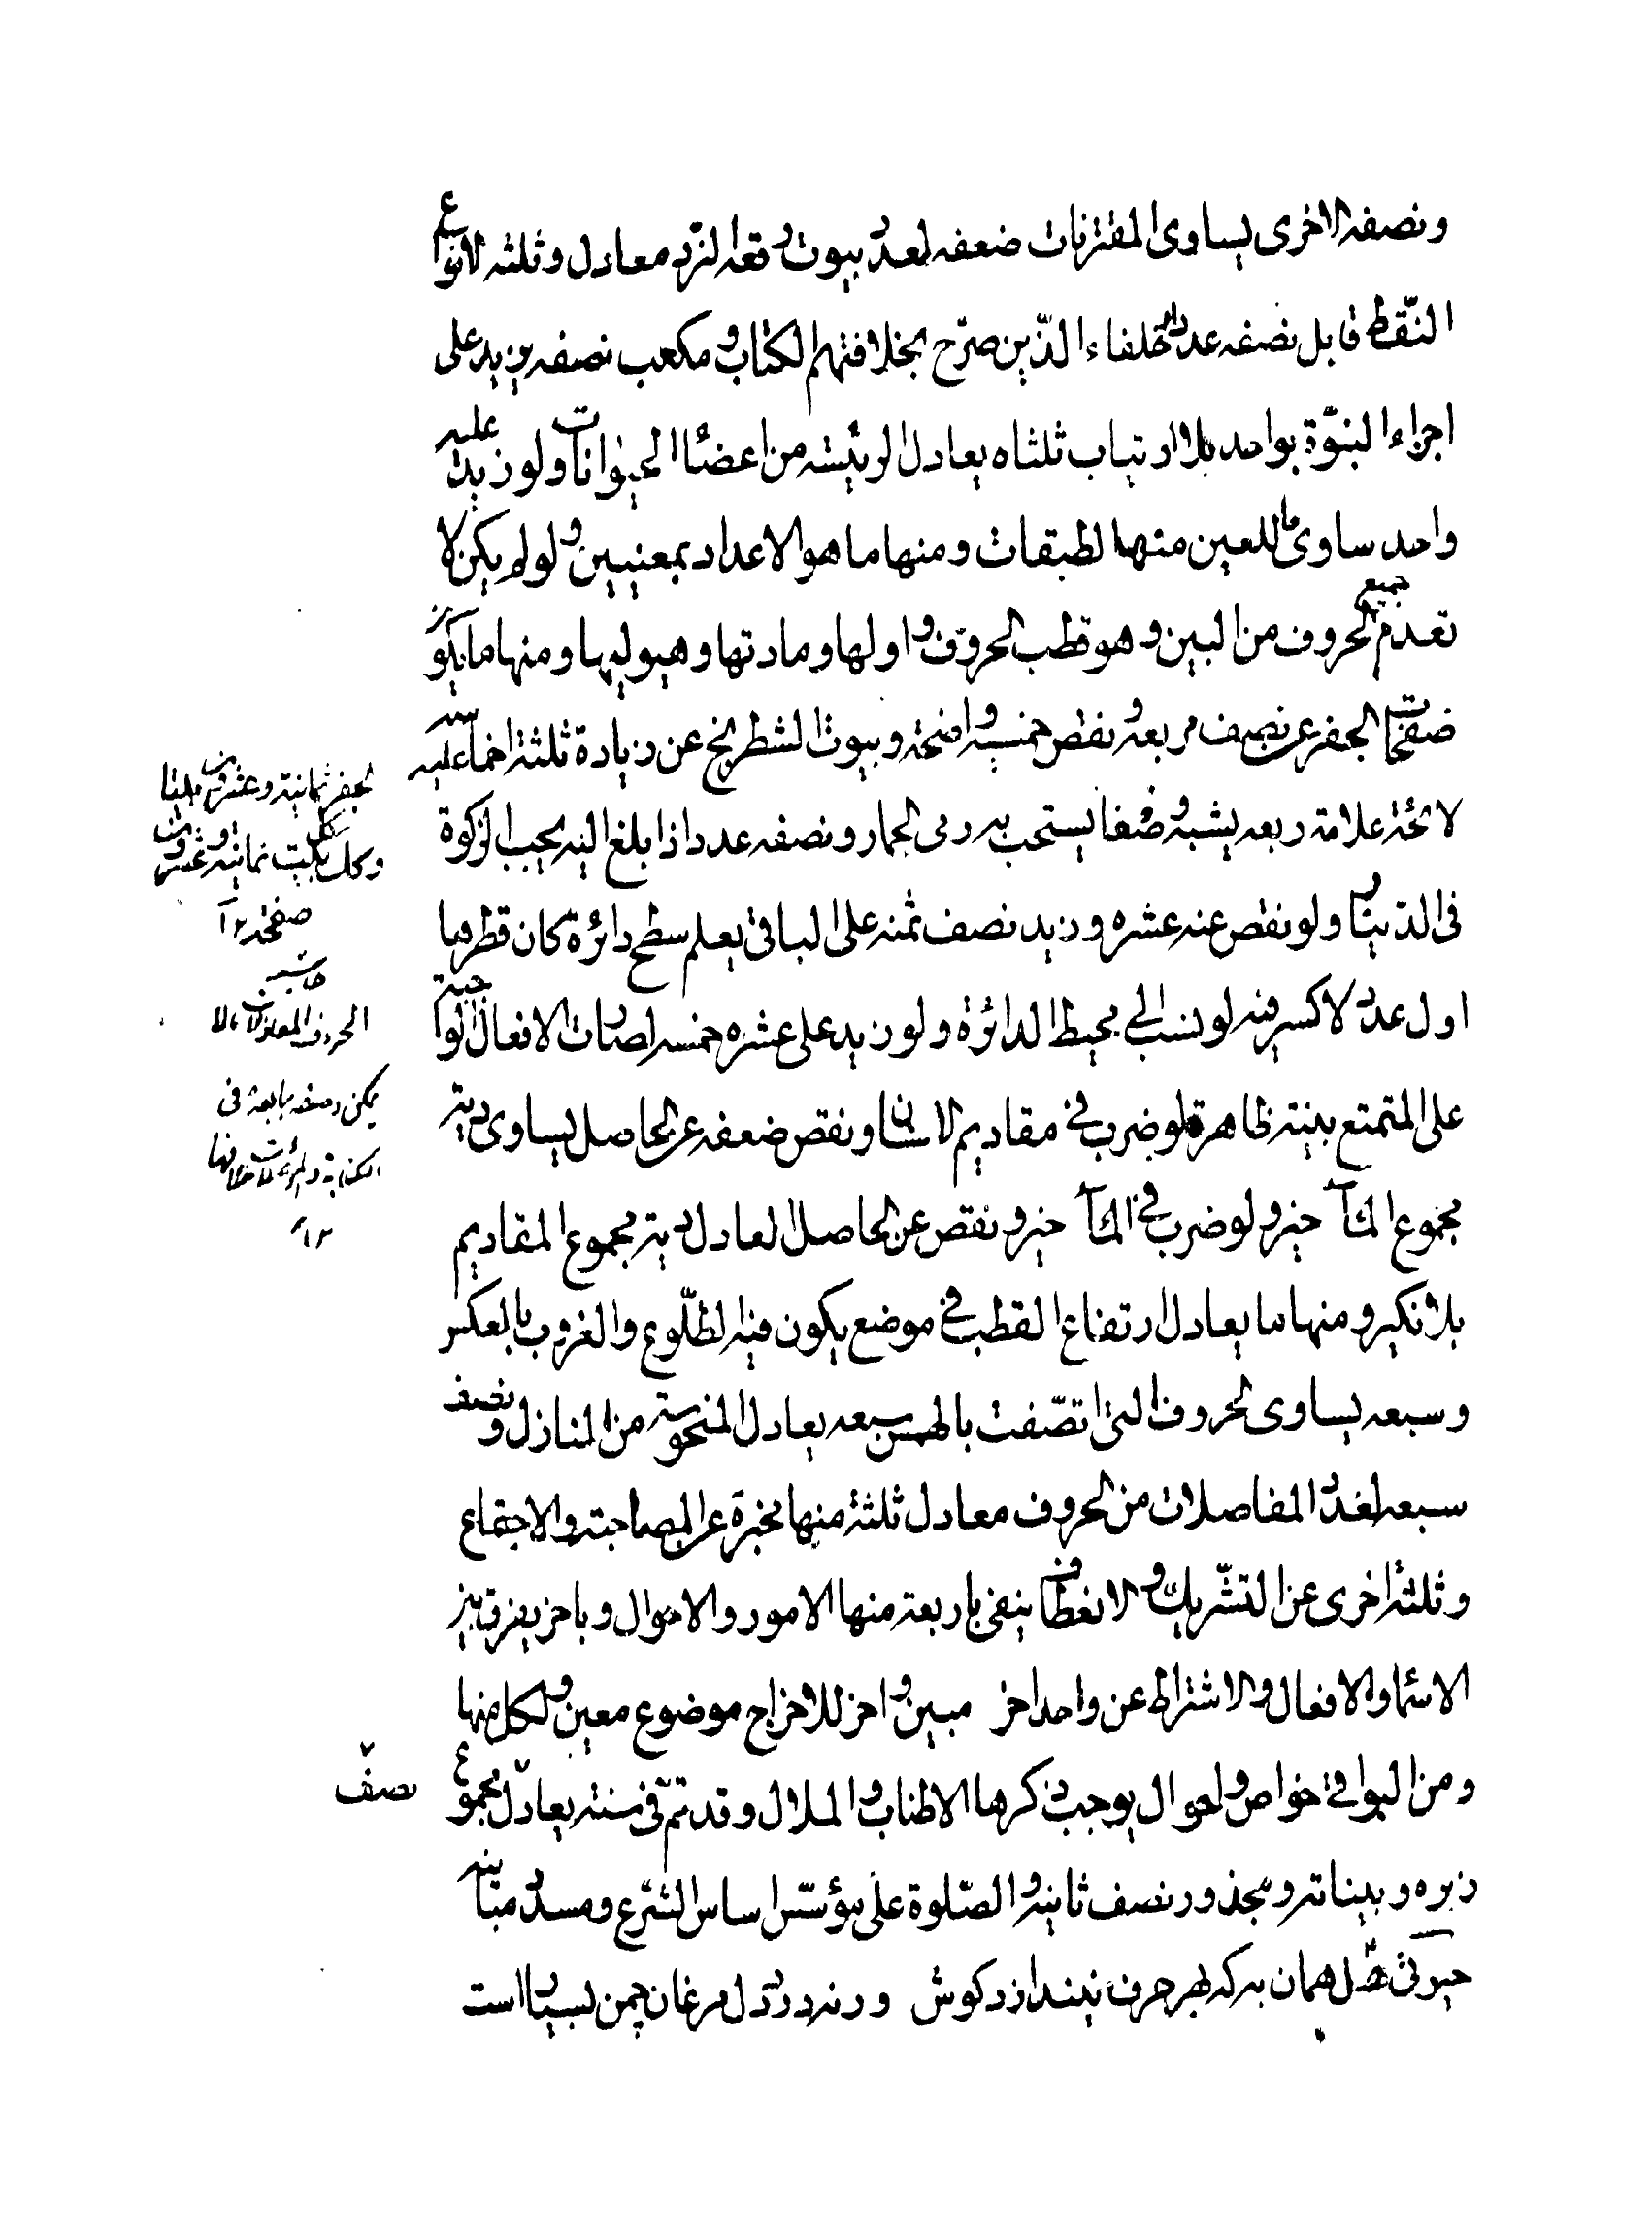 ونصفه الاخرى يساوى المقترنات ضعفه لعدد بيوت رقعة النرد معادل وثلثه لانواع
النقط قابل نصفه عدد الخلفاء الذين صرّح بخلافتهم الكتاب ومكعب نصفه يزيد على
اجزاء النبوّة بواحد بلا ارتياب ثلثاه يعادل الرئيسه من اعضاء الحيوانات ولو زيد عليه
واحد ساوى ما للعين منها الطبقات ومنها ما هو الاعداد بمعنيين ولو لم يكن لا
نعدم جميع الحروف من البين وهو قطب الحروف واولها ومادتها وهيوليها ومنها ما يكون
صفحات الجفر عن نصيف مربعه ونقص خمسيه واضحة وبيوت الشطرنج عن زيادة ثلثة اخماسه عليه
لائحة علامة ربعه يشبه وضعفا يستحب به رمى الجمار ونصفه عدد اذا بلغ اليه يجب الزكوة
فى الدنيار ولو نقص عنه عشره وزيد نصف ثمنه على الباقى يعلم سطح دائرة كان قطرها
اول عدد لا كسر فيه لو نسب الى محيط الدائرة ولو زيد على عشره خمسه لصارت الافعال الواجبة
على المتمتع بينة ظاهرة ولو ضرب فى مقاديم الاسنان ونقص ضعفه عن الحاصل يساوى دية
مجموع المآخير ولو ضرب فى المآخير ونقص عن الحاصل لعادل دية مجموع المقاديم
بلا نكير ومنها ما يعادل ارتفاع القطب فى موضع يكون فيه الطلوع والغروب بالعكس
وسبعه يساوى الحروف التى اتصفت بالهمس سبعه يعادل المنحوسة من المنازل ونصف
سبعه لعدد المفاصلات من الحروف معادل ثلثة منها مخبرة عن المصاحبة والاجتماع
وثلثة اخرى عن التشريك والانعطاف ينفى باربعة منها الامور والاحوال وباخر يفرق بين
الاسماء والافعال والاشتراط عن واحد اخر مبين واخر للاخراج موضوع معين ولكل منها
ومن البواقى خواص واحوال يوجب ذكرها الاطناب والملال وقد تمّ فى سنة يعادل مجموع
زبره وبيناته ومجذور نصف ثانيه والصلوة على مؤسّس اساس الشرع ومسدد مبانيه
حيرتى صل همان به كه بهر حرف نيندازد كوش ورنه درد دل مرغان چمن بسيار است
الجفر ثمانية وعشرون بيتا
وكل بيت ثمانية وعشرون
صفحة ١٢
حاشيه
الحروف المعادلات ما لا
يمكن وصفه بما بعده فى
الكتابة
١٢
نصف